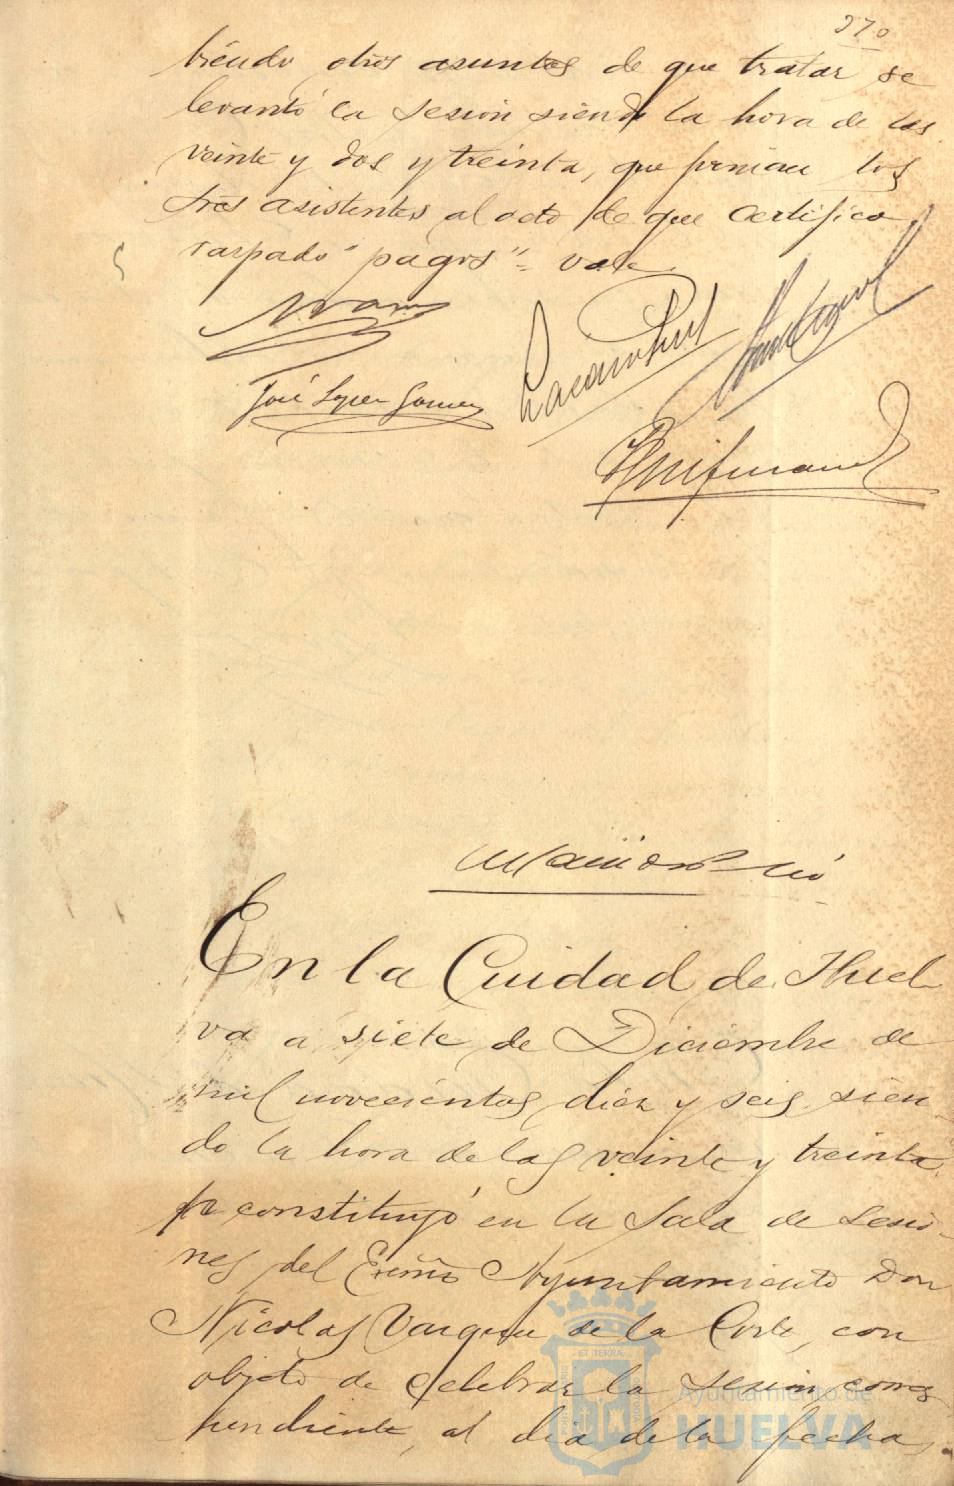 270
biendo otros asuntos de que tratar se
levantó la sesion siendo la hora de las
veinte y dos y treinta, que firman los
tres asistentes al acto de que certifico
raspado "pagos" = vale
José Lopez Gomez
En la Cuidad de Huel
va a siete de Diciembre de
mil novecientos diez y seis sien
do la hora de las veinte y treinta
se constituyó en la Sala de Sesio
nes del Exmo Ayuntamiento Don
Nicolas Vazquez de la Corte, con
objeto de celebrar la sesion corres
pondiente, al dia de la fecha,
Ayuntamiento de
HUELVA